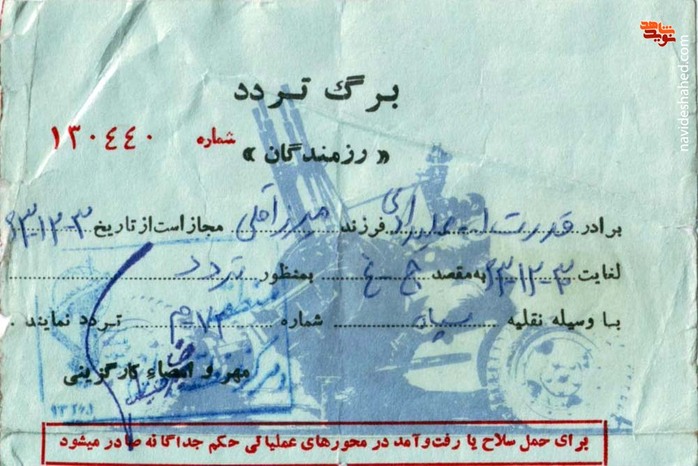 نوید شاهد
navideshahed.com
برگ تردد
شماره ۱۳۰٤٤۰
« رزمندگان »
برادر قدرت ا... فرزند میرزاقلی مجاز است از تاریخ ۳-۱۲-۶۳
لغایت ۳-۱۲-۶۳ به مقصد ج غ بمنظور تردد
با وسیله نقلیه سپاه شماره تردد نمایند .
مهر و امضاء کارگزینی
برای حمل سلاح یا رفت و آمد در محورهای عملیاتی حکم جداگانه صادر میشود